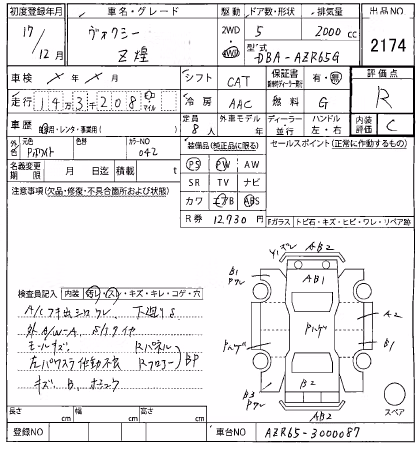 初度登録年月 車名・グレード 駆動 ドア数・形状 排気量 出品NO
17/12月 ヴォクシー Z煌 2WD 4WD 5 2000 cc 2174
型式 DBA-AZR65G
車検 × 年 × 月 シフト CAT 保証書 有・無 評価点
走行 14万3千208 Km マイル 冷房 AAC 燃料 G R
車歴 自家用・レンタ・事業用( ) 定員 8人 外車モデル 年 ディーラー・並行 ハンドル 左・右 内装評価 C
外色 元色 Pホワイト 色替 カラーNO 042
装備品(純正品に限る) セールスポイント(正常に作動するもの)
PS PW AW
名義変更期限 月 日迄 積載 t
SR TV ナビ
注意事項(欠品・修復・不具合箇所および状態)
カワ エアB ABS
R券 12,730円
Fガラス トビ石・キズ・ヒビ・ワレ・リペア跡
AB2
AB1
B1
Pワレ
A2
B1
Pハゲ
Pハゲ
B2
B3
Pワレ
AB2
スペア
検査員記入 内装 汚レ・スレ・キズ・キレ・コゲ・穴
モールキズ Rパネル
左パワスラ作動不良 Rフロアー BP
長さ cm 幅 cm 高さ cm
登録NO 車台NO AZR65-3000087